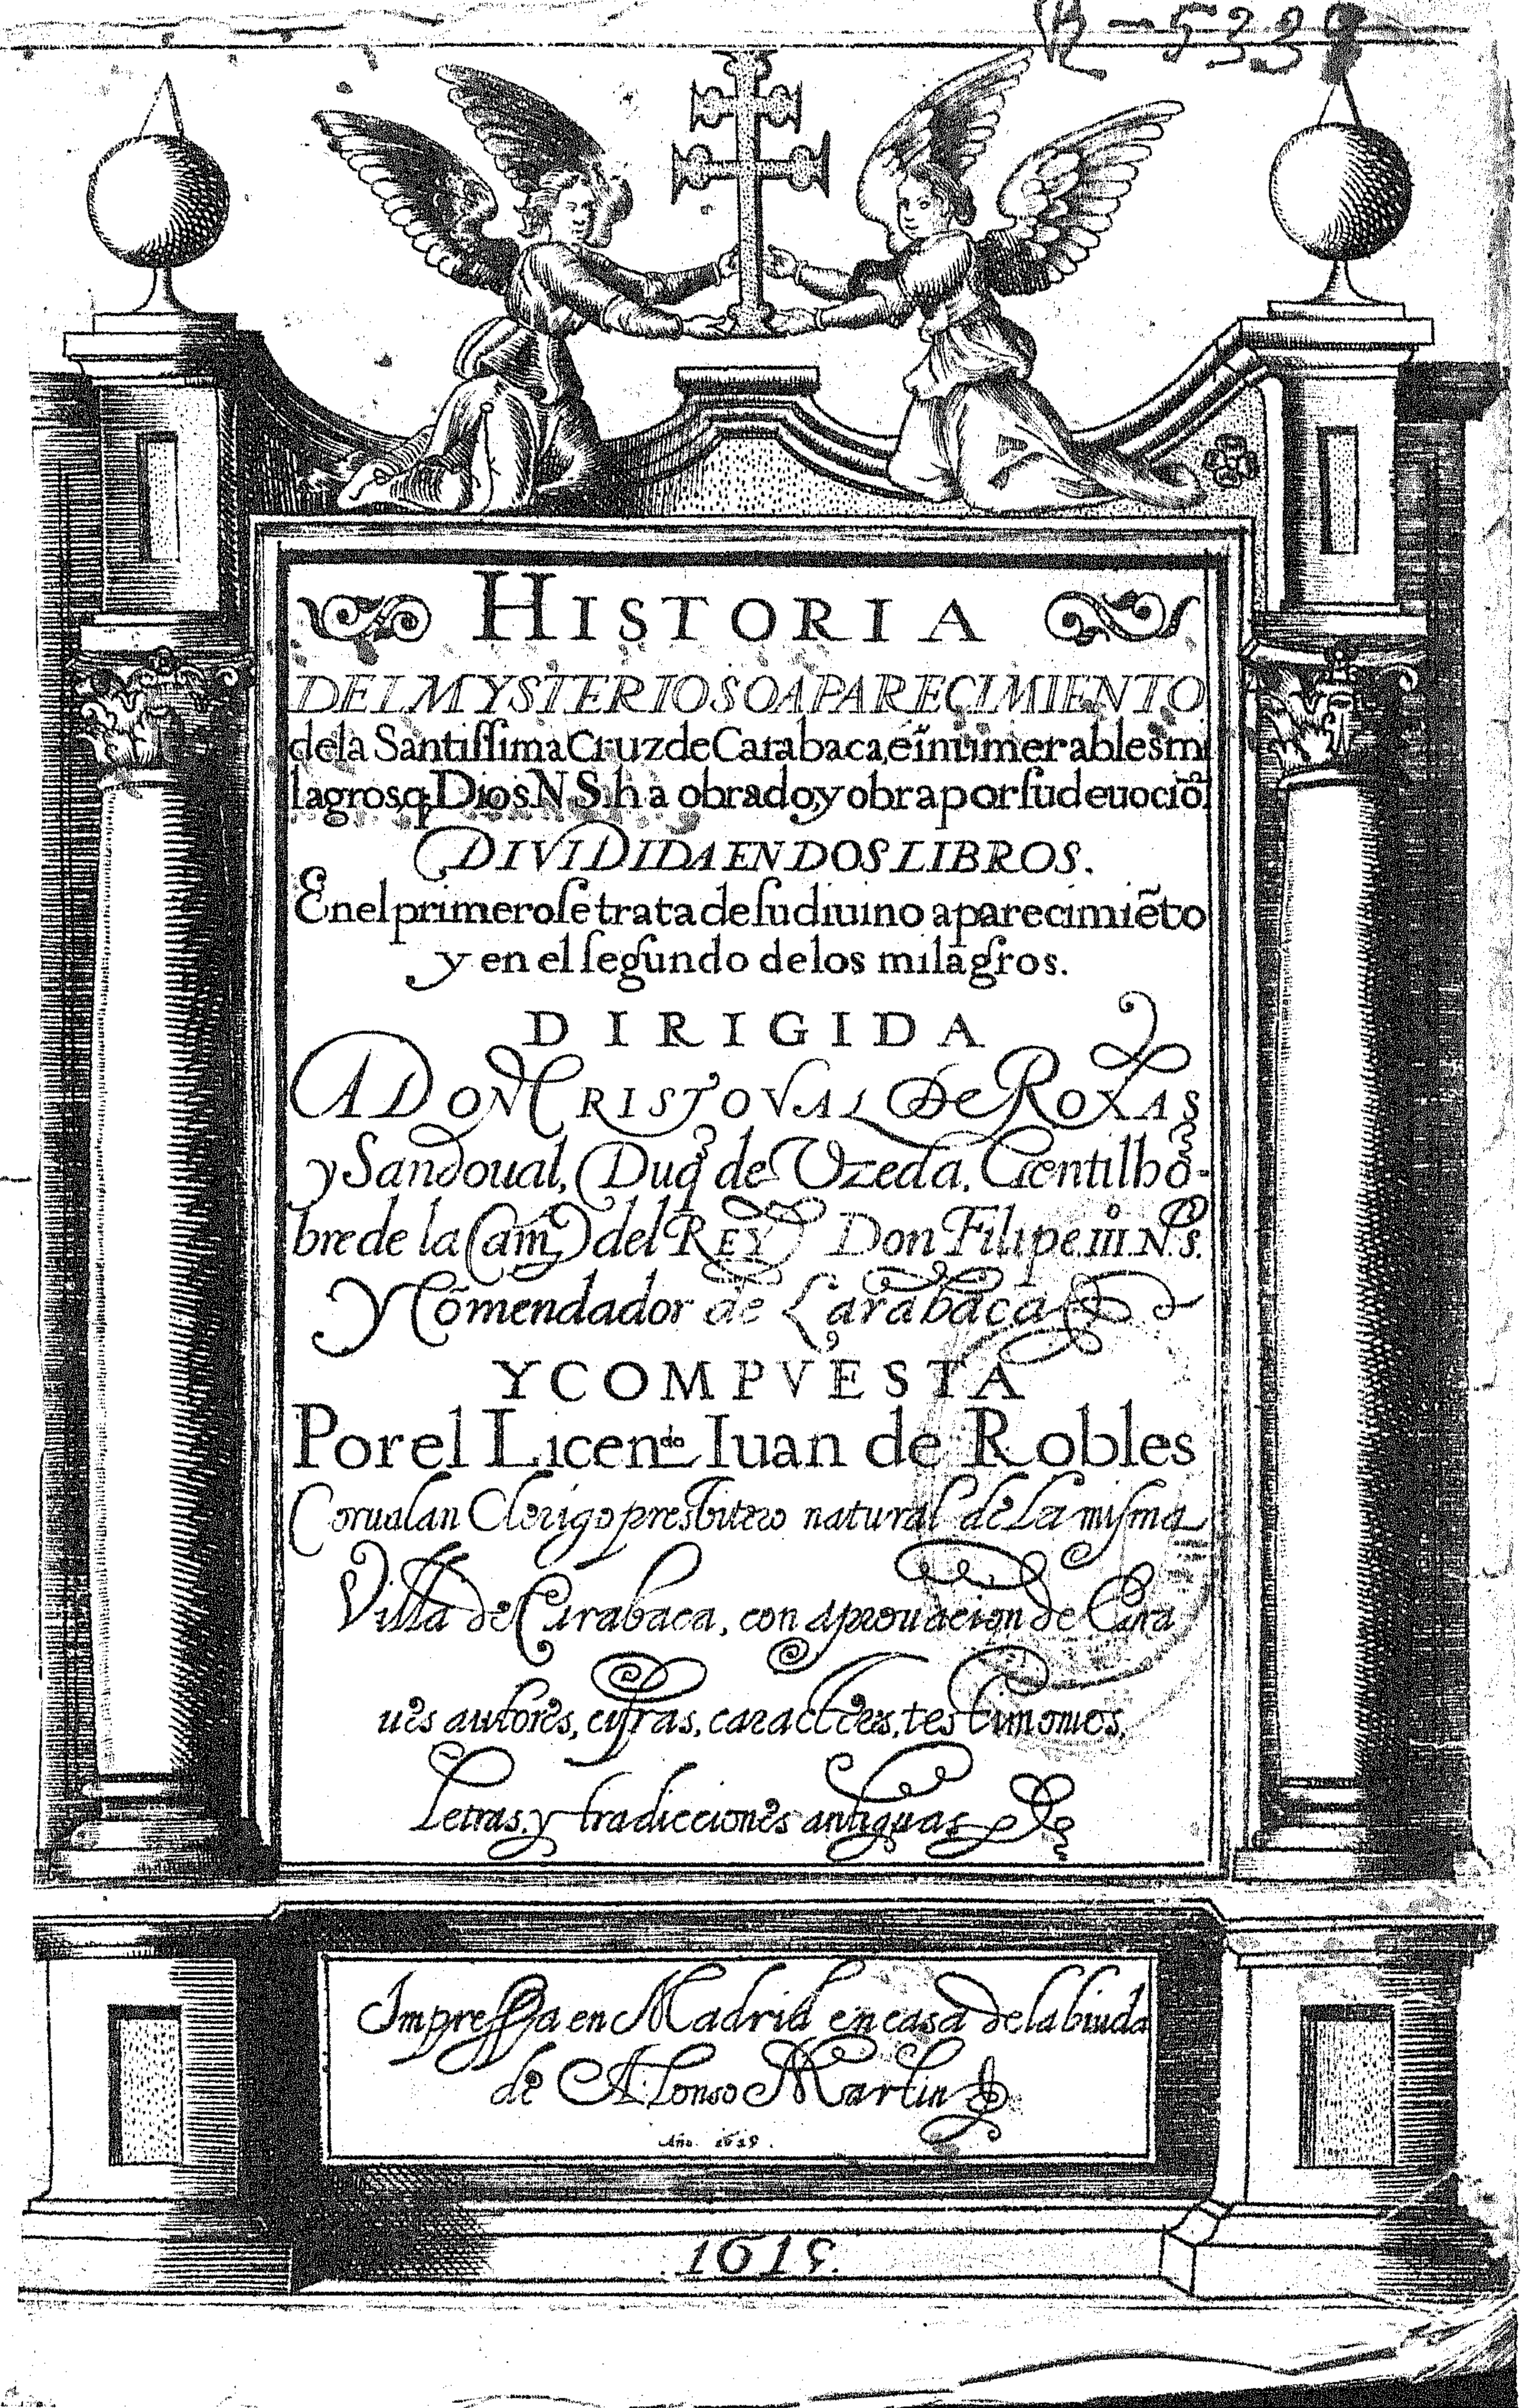 R-5339
HISTORIA
DEL MYSTERIOSO APARECIMIENTO
de la Santiſſima Cruz de Carabaca, e inumerables mi
lagros q̃ Dios N S. ha obrado, y obra por ſu deuociõ.
DIVIDIDA EN DOS LIBROS.
En el primero ſe trata de ſu diuino aparecimiẽto
y en el ſegundo de los milagros.
DIRIGIDA
A DON CRISTOVAL De ROXAS
y Sandoual, Duq̃ de Vzeda, Gentilhõ-
bre de la Cam.ª del REY Don Filipe.iii.N.S.
Y Cõmendador de Carabaca
Y COMPVESTA
Por el Licen.do Iuan de Robles
Corualan Clerigo presbitero natural de la miſma
Villa de Carabaca, con aprouacion de Gra
ues autores, cifras, caracteres, testimonios,
Letras, y tradicciones antiguas
Impreſſa en Madrid en casa de la biuda
de Alonso Martin
Año. 1615.
.1615.